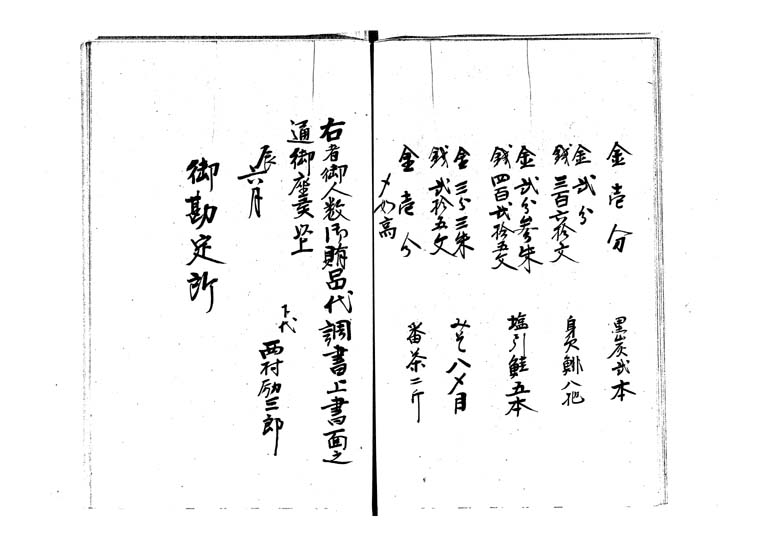 金壱分 黒炭弐本
金弐分
銭三百六拾文 身欠鯡八把
金弐分参朱
銭四百弐拾五文 塩引鮭五本
金三分三朱
銭弐拾五文 みそ八〆目
金壱分 番茶二斤
〆如高
右者御人数御賄品代調書上書面之
通御座候以上
辰六月 下代
西村励三郎
御勘定所